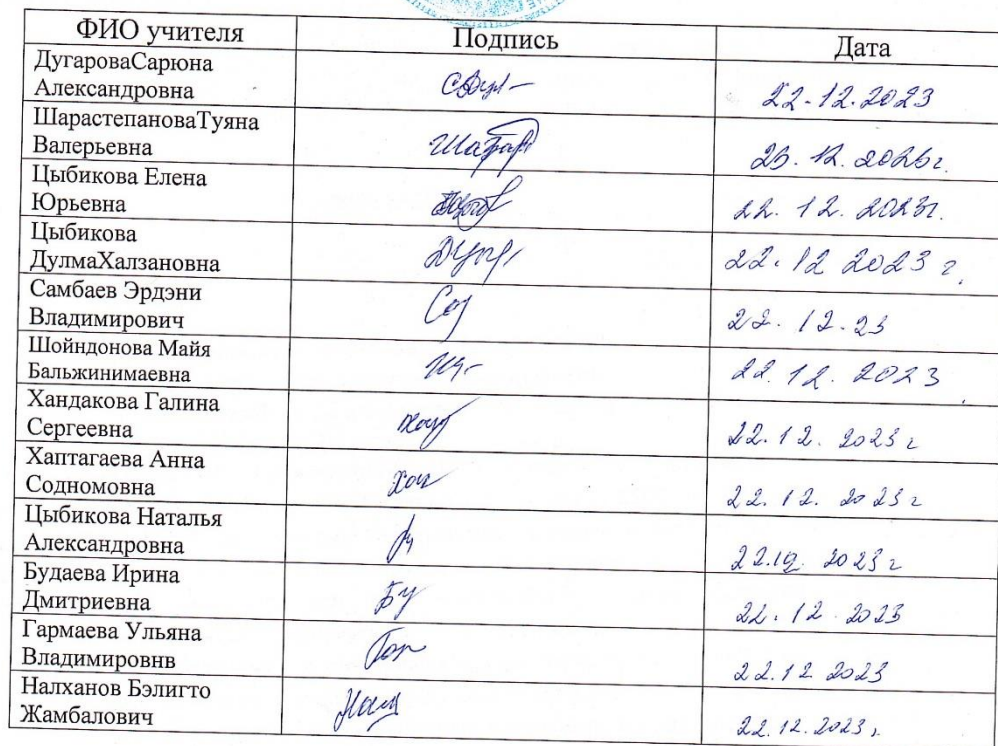 ФИО учителя Подпись Дата
ДугароваСарюна
Александровна
22.12.2023
ШарастепановаТуяна
Валерьевна
Цыбикова Елена
Юрьевна
22.12.2023г.
Цыбикова
ДулмаХалзановна
22.12 2023 г.
Самбаев Эрдэни
Владимирович
22.12.23
Шойндонова Майя
Бальжинимаевна
22.12.2023
Хандакова Галина
Сергеевна
22.12.2023 г
Хаптагаева Анна
Содномовна
22.12.2023 г
Цыбикова Наталья
Александровна
22.12. 2023 г
Будаева Ирина
Дмитриевна
Бу
22.12.2023
Гармаева Ульяна
Владимировнв
22.12.2023
Налханов Бэлигто
Жамбалович
22.12.2023 г.